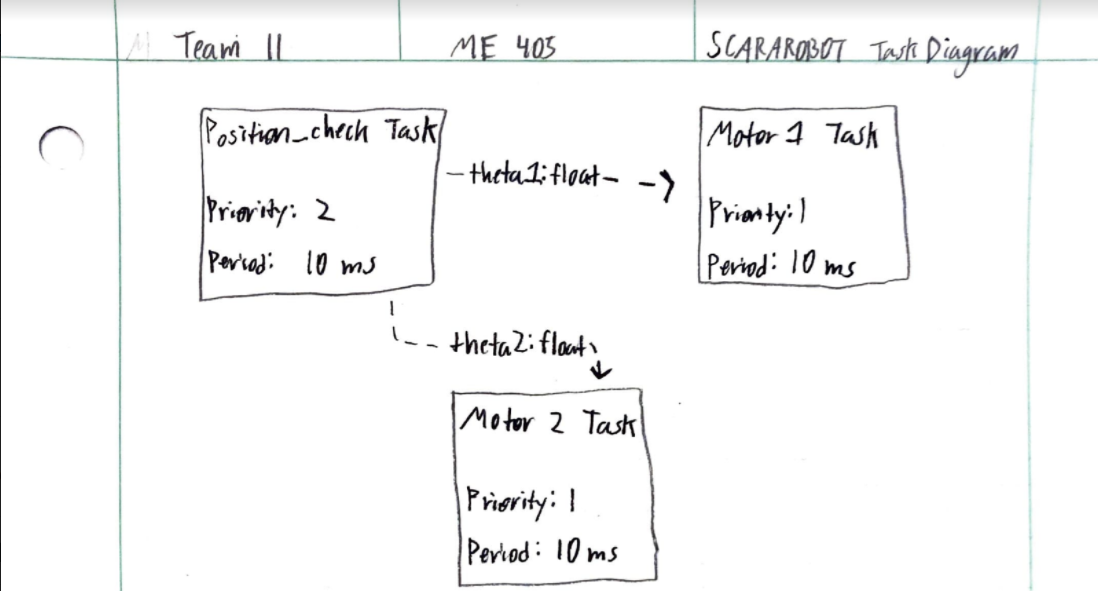 Team 11
ME 405
SCARAROBOT Task Diagram
Position_check Task
Priority: 2
Period: 10 ms
theta1:float
Motor 1 Task
Priority: 1
Period: 10 ms
theta2:float
Motor 2 Task
Priority: 1
Period: 10 ms